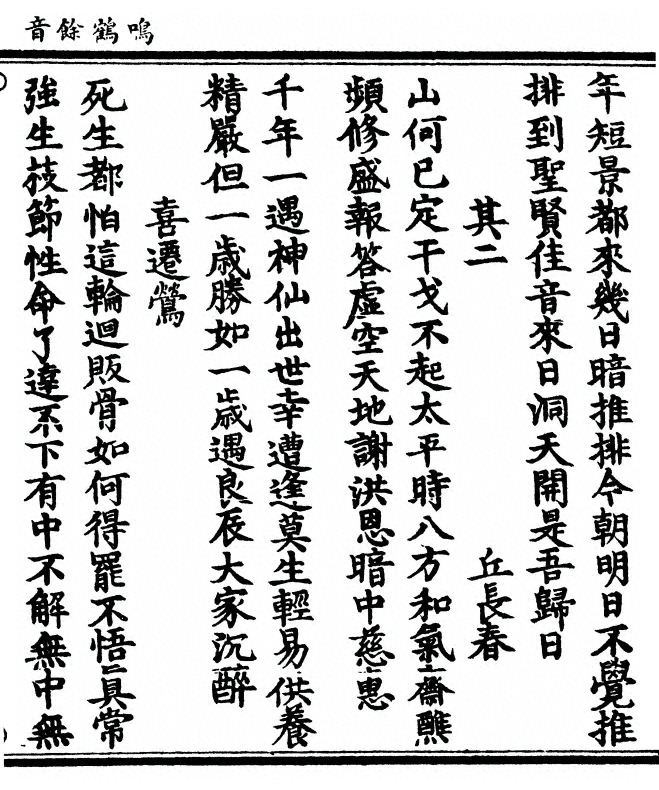 鳴鶴餘音
年短景都來幾日暗推排今朝明日不覺推
排到聖賢佳音來日洞天開是吾歸日
其二 丘長春
山河已定干戈不起太平時八方和氣齋醮
頻修盛報答虛空天地謝洪恩暗中慈惠
千年一遇神仙出世幸遭逢莫生輕易供養
精嚴但一歲勝如一歲遇良辰大家沉醉
喜遷鶯
死生都怕這輪迴販骨如何得罷不悟眞常
強生枝節性命了達不下有中不解無中無